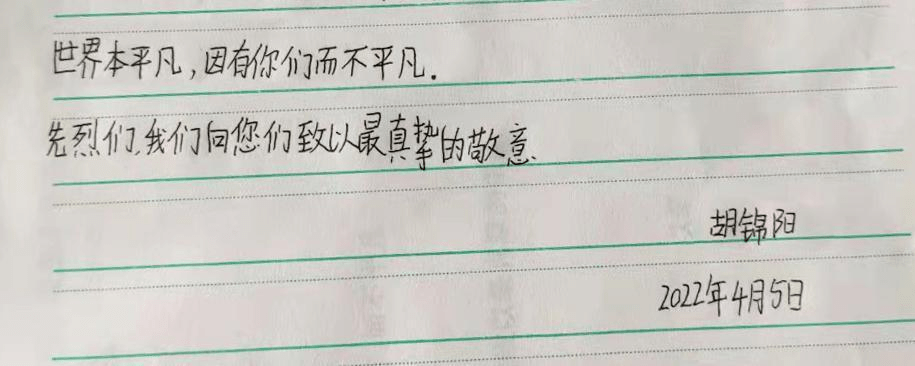 世界本平凡,因有你们而不平凡.
先烈们,我们向您们致以最真挚的敬意.
胡锦阳
2022年4月5日